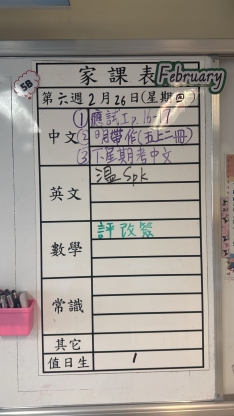 家課表
February
5B
第六週2月26日(星期四)
中文
①應試I p.16-17
②明帶作(五上二冊)
③下星期考中文
英文
溫Spk
數學
評改簽
常識
其它
值日生
1